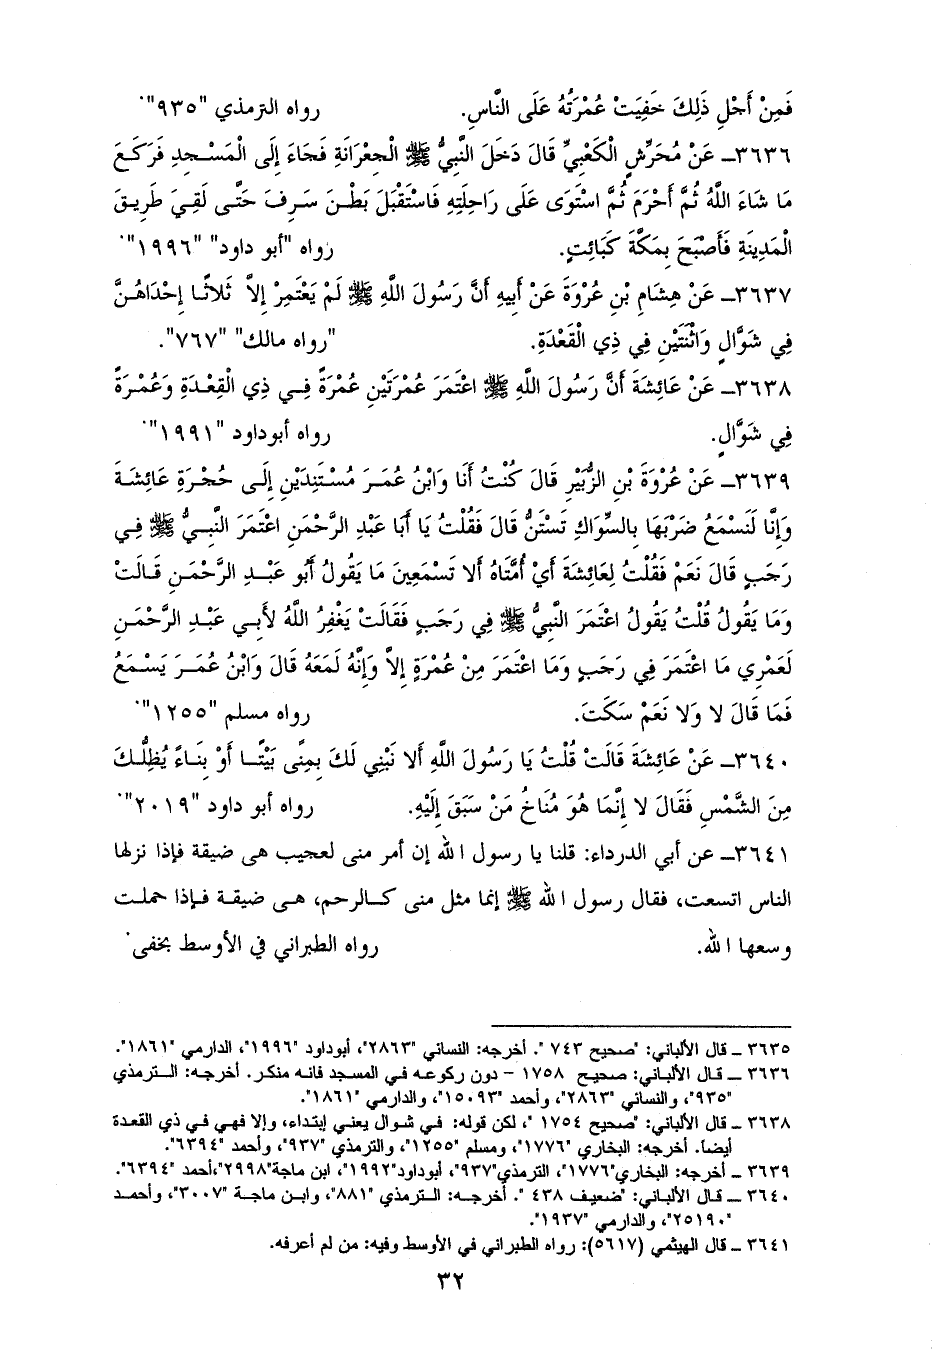 فَمِنْ أَجْلِ ذَلِكَ خَفِيَتْ عُمْرَتُهُ عَلَى النَّاسِ. رواه الترمذي "٩٣٥".
٣٦٣٦ـ عَنْ مُحَرِّشٍ الْكَعْبِيِّ قَالَ دَخَلَ النَّبِيُّ ﷺ الْجِعْرَانَةِ فَجَاءَ إِلَى الْمَسْجِدِ فَرَكَعَ
مَا شَاءَ اللَّهُ ثُمَّ أَحْرَمَ ثُمَّ اسْتَوَى عَلَى رَاحِلَتِهِ فَاسْتَقْبَلَ بَطْنَ سَرِفَ حَتَّى لَقِيَ طَرِيقَ
الْمَدِينَةِ فَأَصْبَحَ بِمَكَّةَ كَبَائِتٍ. رواه "أبو داود" "١٩٩٦".
٣٦٣٧ـ عَنْ هِشَامِ بْنِ عُرْوَةَ عَنْ أَبِيهِ أَنَّ رَسُولَ اللَّهِ ﷺ لَمْ يَعْتَمِرْ إِلاَّ ثَلاثًا إِحْدَاهُنَّ
فِي شَوَّالٍ وَاثْنَتَيْنِ فِي ذِي الْقَعْدَةِ. "رواه مالك" "٧٦٧".
٣٦٣٨ـ عَنْ عَائِشَةَ أَنَّ رَسُولَ اللَّهِ ﷺ اعْتَمَرَ عُمْرَتَيْنِ عُمْرَةً فِي ذِي الْقِعْدَةِ وَعُمْرَةً
فِي شَوَّالٍ. رواه أبوداود "١٩٩١".
٣٦٣٩ـ عَنْ عُرْوَةَ بْنِ الزُّبَيْرِ قَالَ كُنْتُ أَنَا وَابْنُ عُمَرَ مُسْتَنِدَيْنِ إِلَى حُجْرَةِ عَائِشَةَ
وَإِنَّا لَنَسْمَعُ ضَرْبَهَا بِالسِّوَاكِ تَسْتَنُّ قَالَ فَقُلْتُ يَا أَبَا عَبْدِ الرَّحْمَنِ اعْتَمَرَ النَّبِيُّ ﷺ فِي
رَجَبٍ قَالَ نَعَمْ فَقُلْتُ لِعَائِشَةَ أَيْ أُمَّتَاهُ أَلا تَسْمَعِينَ مَا يَقُولُ أَبُو عَبْدِ الرَّحْمَنِ قَالَتْ
وَمَا يَقُولُ قُلْتُ يَقُولُ اعْتَمَرَ النَّبِيُّ ﷺ فِي رَجَبٍ فَقَالَتْ يَغْفِرُ اللَّهُ لأَبِي عَبْدِ الرَّحْمَنِ
لَعَمْرِي مَا اعْتَمَرَ فِي رَجَبٍ وَمَا اعْتَمَرَ مِنْ عُمْرَةٍ إِلاَّ وَإِنَّهُ لَمَعَهُ قَالَ وَابْنُ عُمَرَ يَسْمَعُ
فَمَا قَالَ لا وَلا نَعَمْ سَكَتَ. رواه مسلم "١٢٥٥".
٣٦٤٠ـ عَنْ عَائِشَةَ قَالَتْ قُلْتُ يَا رَسُولَ اللَّهِ أَلا نَبْنِي لَكَ بِمِنًى بَيْتًا أَوْ بِنَاءً يُظِلُّكَ
مِنَ الشَّمْسِ فَقَالَ لا إِنَّمَا هُوَ مُنَاخُ مَنْ سَبَقَ إِلَيْهِ. رواه أبو داود "٢٠١٩".
٣٦٤١ـ عن أبي الدرداء: قلنا يا رسول الله إن أمر منى لعجيب هى ضيقة فإذا نزلها
الناس اتسعت، فقال رسول الله ﷺ إنما مثل منى كالرحم، هى ضيقة فإذا حملت
وسعها الله. رواه الطبراني في الأوسط بخفى.
٣٦٣٥ ـ قال الألباني: "صحيح ٧٤٣ ". أخرجه: النسائي "٢٨٦٣"، أبوداود "١٩٩٦"، الدارمي "١٨٦١".
٣٦٣٦ ـ قال الألباني: صحيح ١٧٥٨ - دون ركوعه في المسجد فانه منكر. أخرجه: الترمذي
"٩٣٥"، والنسائي "٢٨٦٣"، وأحمد "١٥٠٩٣"، والدارمي "١٨٦١".
٣٦٣٨ ـ قال الألباني: "صحيح ١٧٥٤ "، لكن قوله: في شوال يعني إبتداء، وإلا فهي في ذي القعدة
أيضا. أخرجه: البخاري "١٧٧٦"، ومسلم "١٢٥٥"، والترمذي "٩٣٧"، وأحمد "٦٣٩٤".
٣٦٣٩ ـ أخرجه: البخاري"١٧٧٦"، الترمذي"٩٣٧"، أبوداود"١٩٩٢"، ابن ماجة"٢٩٩٨"،أحمد "٦٣٩٤".
٣٦٤٠ ـ قال الألباني: "ضعيف ٤٣٨ ". أخرجه: الترمذي "٨٨١"، وابن ماجة "٣٠٠٧"، وأحمد
"٢٥١٩٠"، والدارمي "١٩٣٧".
٣٦٤١ ـ قال الهيثمي (٥٦١٧): رواه الطبراني في الأوسط وفيه: من لم أعرفه.
٣٢